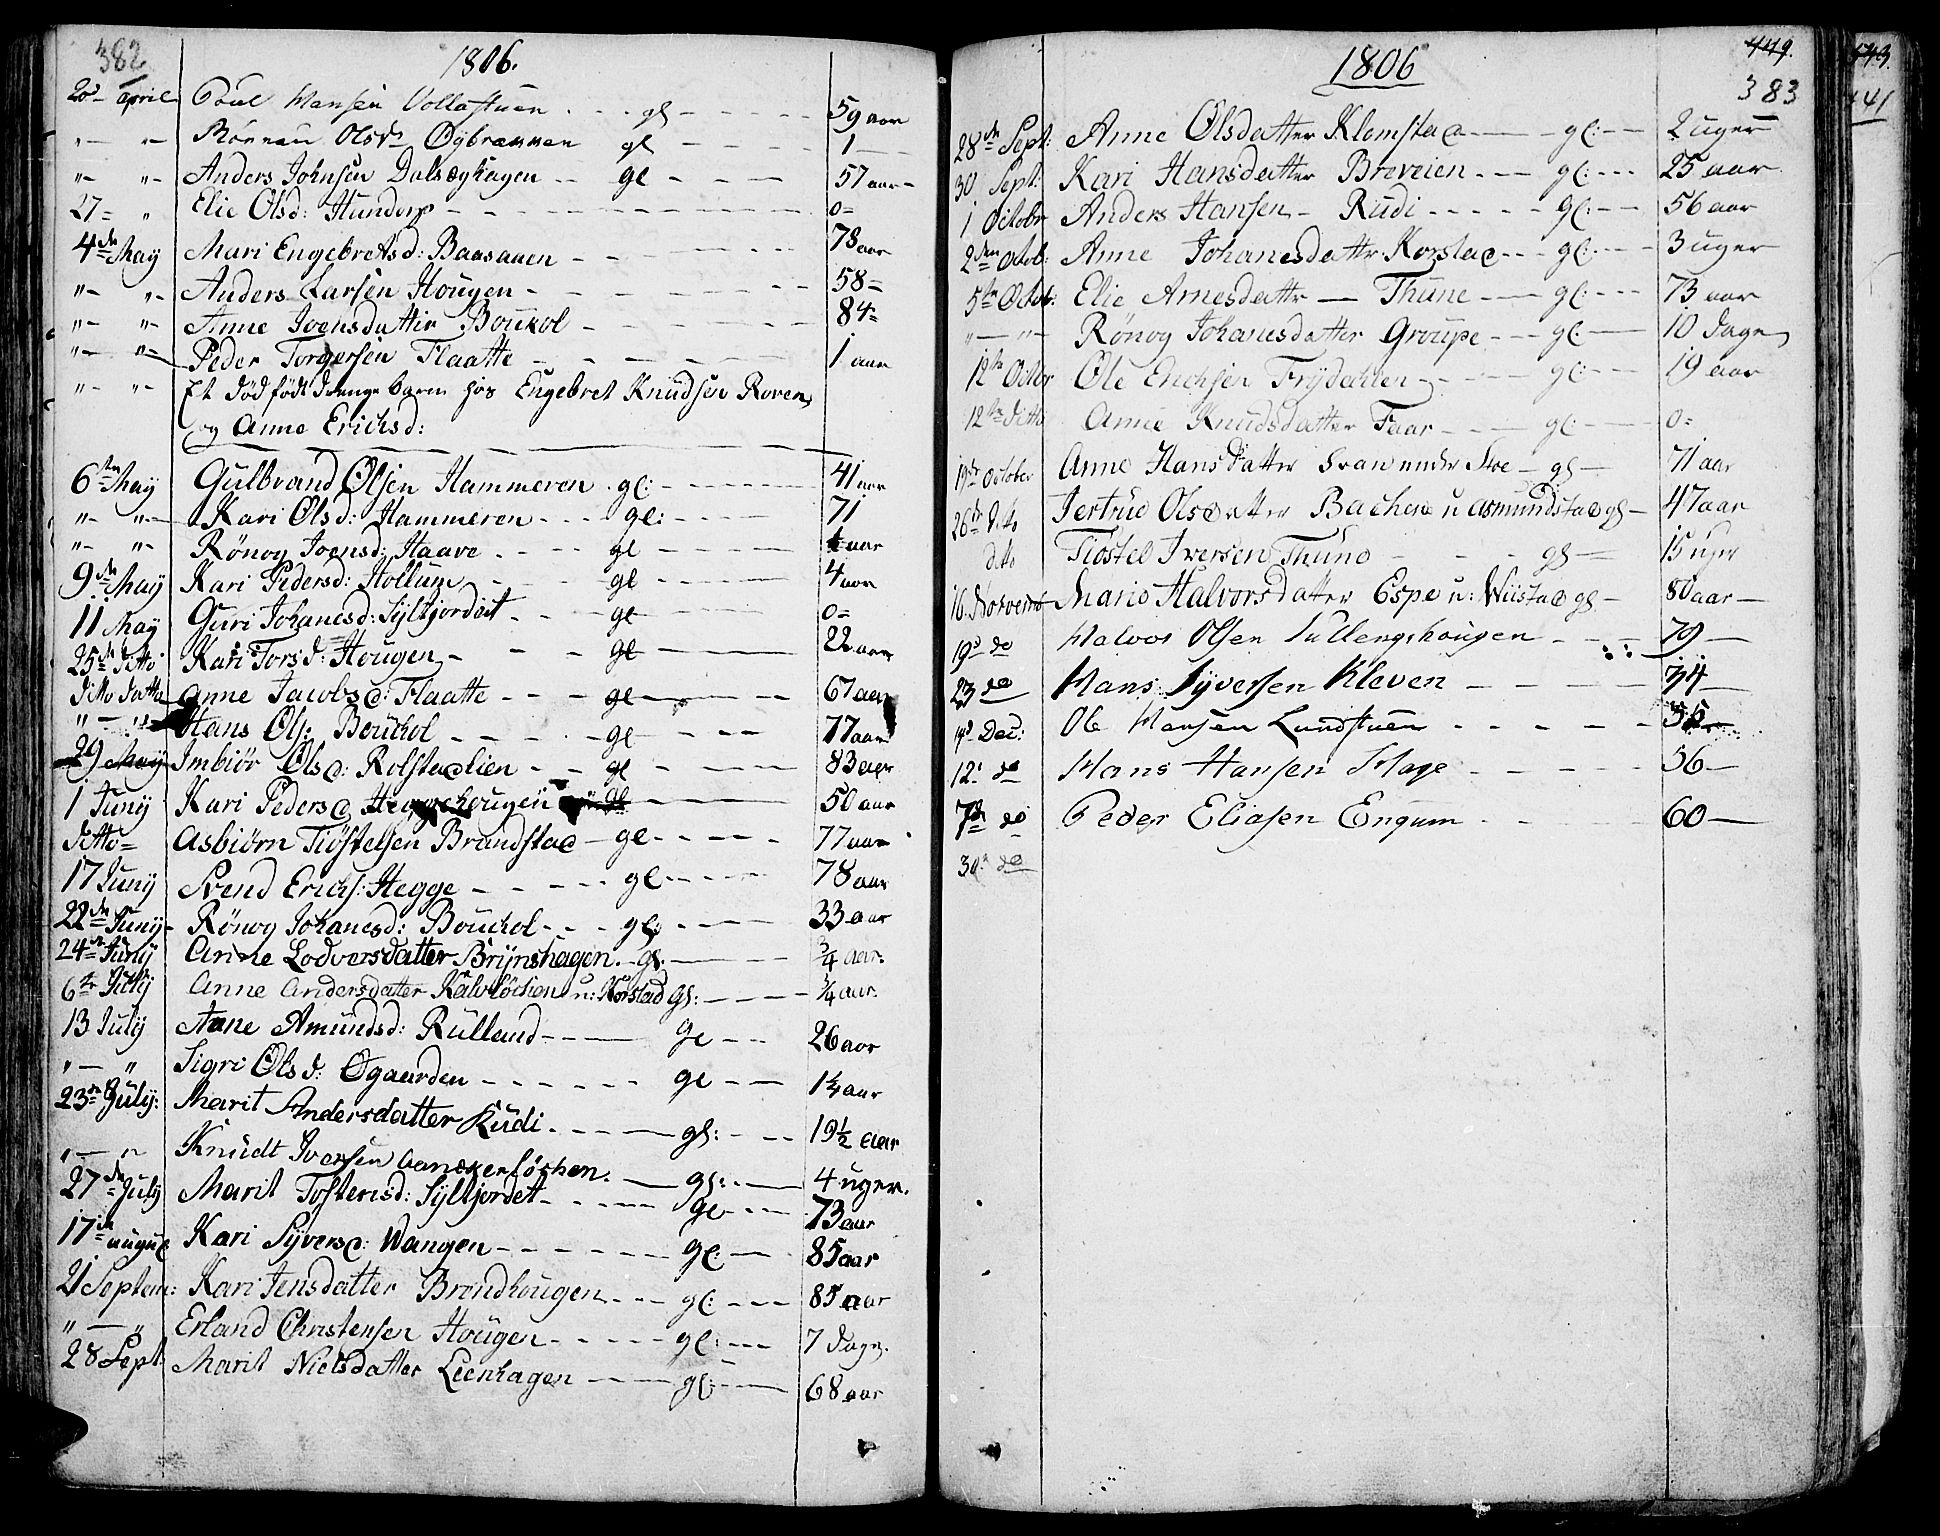 382
1806.
20d April Poul Hansen Vollastuen - - - gl - - - - 59 aar
"- "- Rønnau Olsdr Øybrækken gl - - - - 1 -
"- "- Anders Johnsen Dalsæghagen - - gl - - - 57 aar -
27 = " Elie Olsd: Hundorp - - - - - - - 0 =
4de May Mari Engebretsd: Baasauen - - - - - 78 aar
"- "- Anders Larsen Hougen - - - - - - 58 =
"- "- Anne Joensdatter Boukol - - - - - - 84 =
"- "- Peder Torgersen Flaatte - - - - - - 1 aar
"- "- Et død født drenge barn hos Engebret Knudsen Roven
og Anne Erichsd:
6te May Gulbrand Olsen Hammeren - gl: - - - - 41 aar
"- "- Kari Olsd: Hammeren - - - gl: - - - - 71
"- "- Rønog Joensd: Haave - - - - gl - - - - aar
9de May Kari Pedersd: Hollum - - - gl - - - - 4 aar
11 May Guri Johanesd: Sylthjordet - - gl - - - - 0 =
25de ditto Kari Torsd: Hougen - - - gl - - - - 22 aar
ditto datto Anne Jacobsd: Flaatte - - - gl - - - - 67 aar
" - " Hans Ols: Boukol - - - - gl - - - - 77 aar
29 May Imbiør Olsd: Rolstadlien - - gl - - - - 83 aar
1 Juny Kari Pedersd Heggehougen gl - - - - 50 aar
ditto = Asbiørn Tiøstelsen Brandstad - gl - - - - 77 aar
17 Juny Svend Erichs: Hegge - - - - - gl - - - - 78 aar
22de Juny - Rønog Johanesd: Boukol - - - gl: - - - 33 aar
24de Juny Anne Lodversdatter Brynshagen. - gl: - - - 3/4 aar.
6te July Anne Andersdatter Kalvløchen u: Korstad gl: - - - 1/4 aar.
13 July Anne Amundsd: Rulland - - - - gl - - 26 aar
" - " Sigri Olsd: Øgaarden - - - - - - gl - - 1 1/4 aar
23de July: Marit Andersdatter Rudi. - - - - gl: - - - 19 1/2 aar
" - " Knudt Iversen løchen. - gl: - - 4 uger.
27de July Marit Tostensd: Syltjordet - - - - gl - - - 73 aar
17de August Kari Syversd: Wangen - - - - - - gl: - - 85 aar
21 Septem: Kari Jensdatter Brandhougen - - - gl: - - - 85 aar
" - " Erland Christensen Hougen - - - - - gl: - - - 7 dage.
28 Sept: Marit Nielsdatter Lienhagen - - - gl: - - - 68 aar
1806
449.
383
28de Sept: Anne Olsdatter Klomstad - - - gl: - - 2 uger
30 Sept: Kari Hansdatter Breveien - - - gl: - - - 25 aar
1 October Anders Hansen - Rudi - - - - - gl: - - 56 aar
2den Octob: Anne Johanesdatter Korstad - - - gl: - - - 3 uger
5te Octob: Elie Arnesdattr - Thune - - - gl: - - - 73 aar
" - " - Rønog Johanesdatter Groupe - - - gl: - - 10 dage
12te Octobr Ole Erichsen Frydahlen - - - - gl: - - 19 aar
12te ditto Anne Knudsdatter Faar - - - - gl: - - - 0 =
19de October Anne Hansdatter Svan under Stoe - gl - 71 aar
26de ditto Jertrud Olsdatter Bachen u Asmundstad gl - 47 aar
ditto Tiostel Iversen Thune - - - gl - 15 uger
16. November Marie Halvorsdatter Espe u: Wiistad gl - 80 aar -
19d do Halvor Olsen Sullengshougen - - - 79 -
23 do Hans Syversen Kleven - - - - 34 -
14d Dec: Ole Hansen Lundstuen - - - - -
12t do Hans Hansen Hage - - - - - 56 -
7d do Peder Eliasen Engum - - - - 60 -
30d do
443.
441